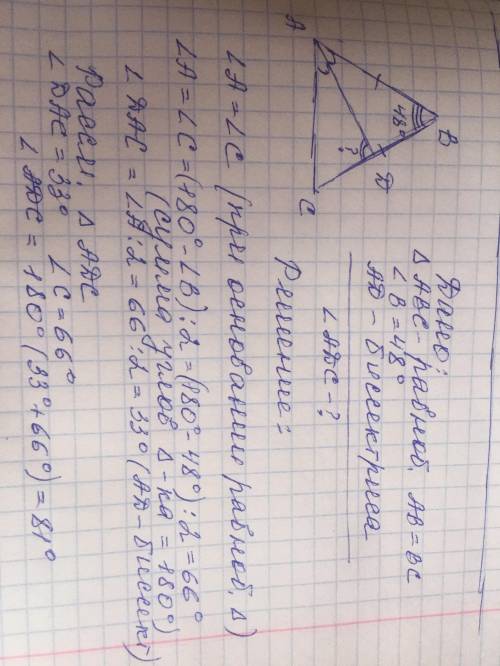 Дано:
Δ ABC - равноб. AB = BC
∠ B = 48°
AD - биссектриса
∠ ADC - ?
B
48°
D
?
A
C
Решение:
∠A = ∠C (при основании равноб. Δ)
∠A = ∠C = (180° - ∠B) : 2 = (180° - 48°) : 2 = 66°
(сумма углов Δ-ка = 180°)
∠ DAC = ∠A : 2 = 66 : 2 = 33° (AD - биссект)
Рассм. Δ ADC
∠ DAC = 33° ∠C = 66°
∠ ADC = 180° (33° + 66°) = 81°